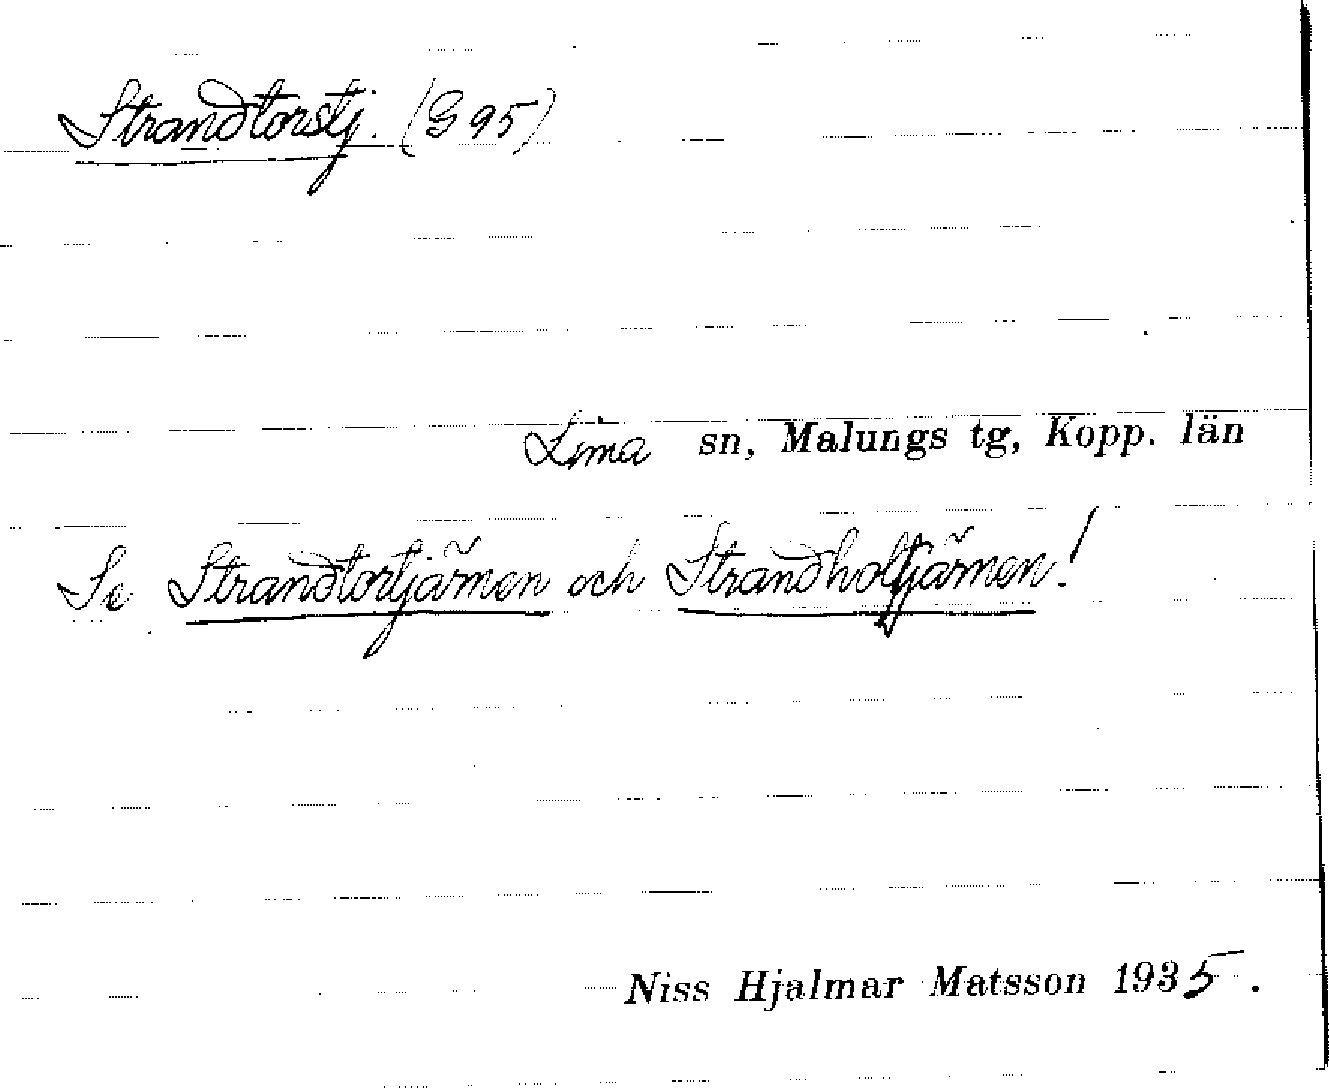 Strandtorstj. (G 95)
Lima sn, Malungs tg, Kopp. län
Se Strandtortjärnen och Strandholtjärnen!
Niss Hjalmar Matsson 1935.